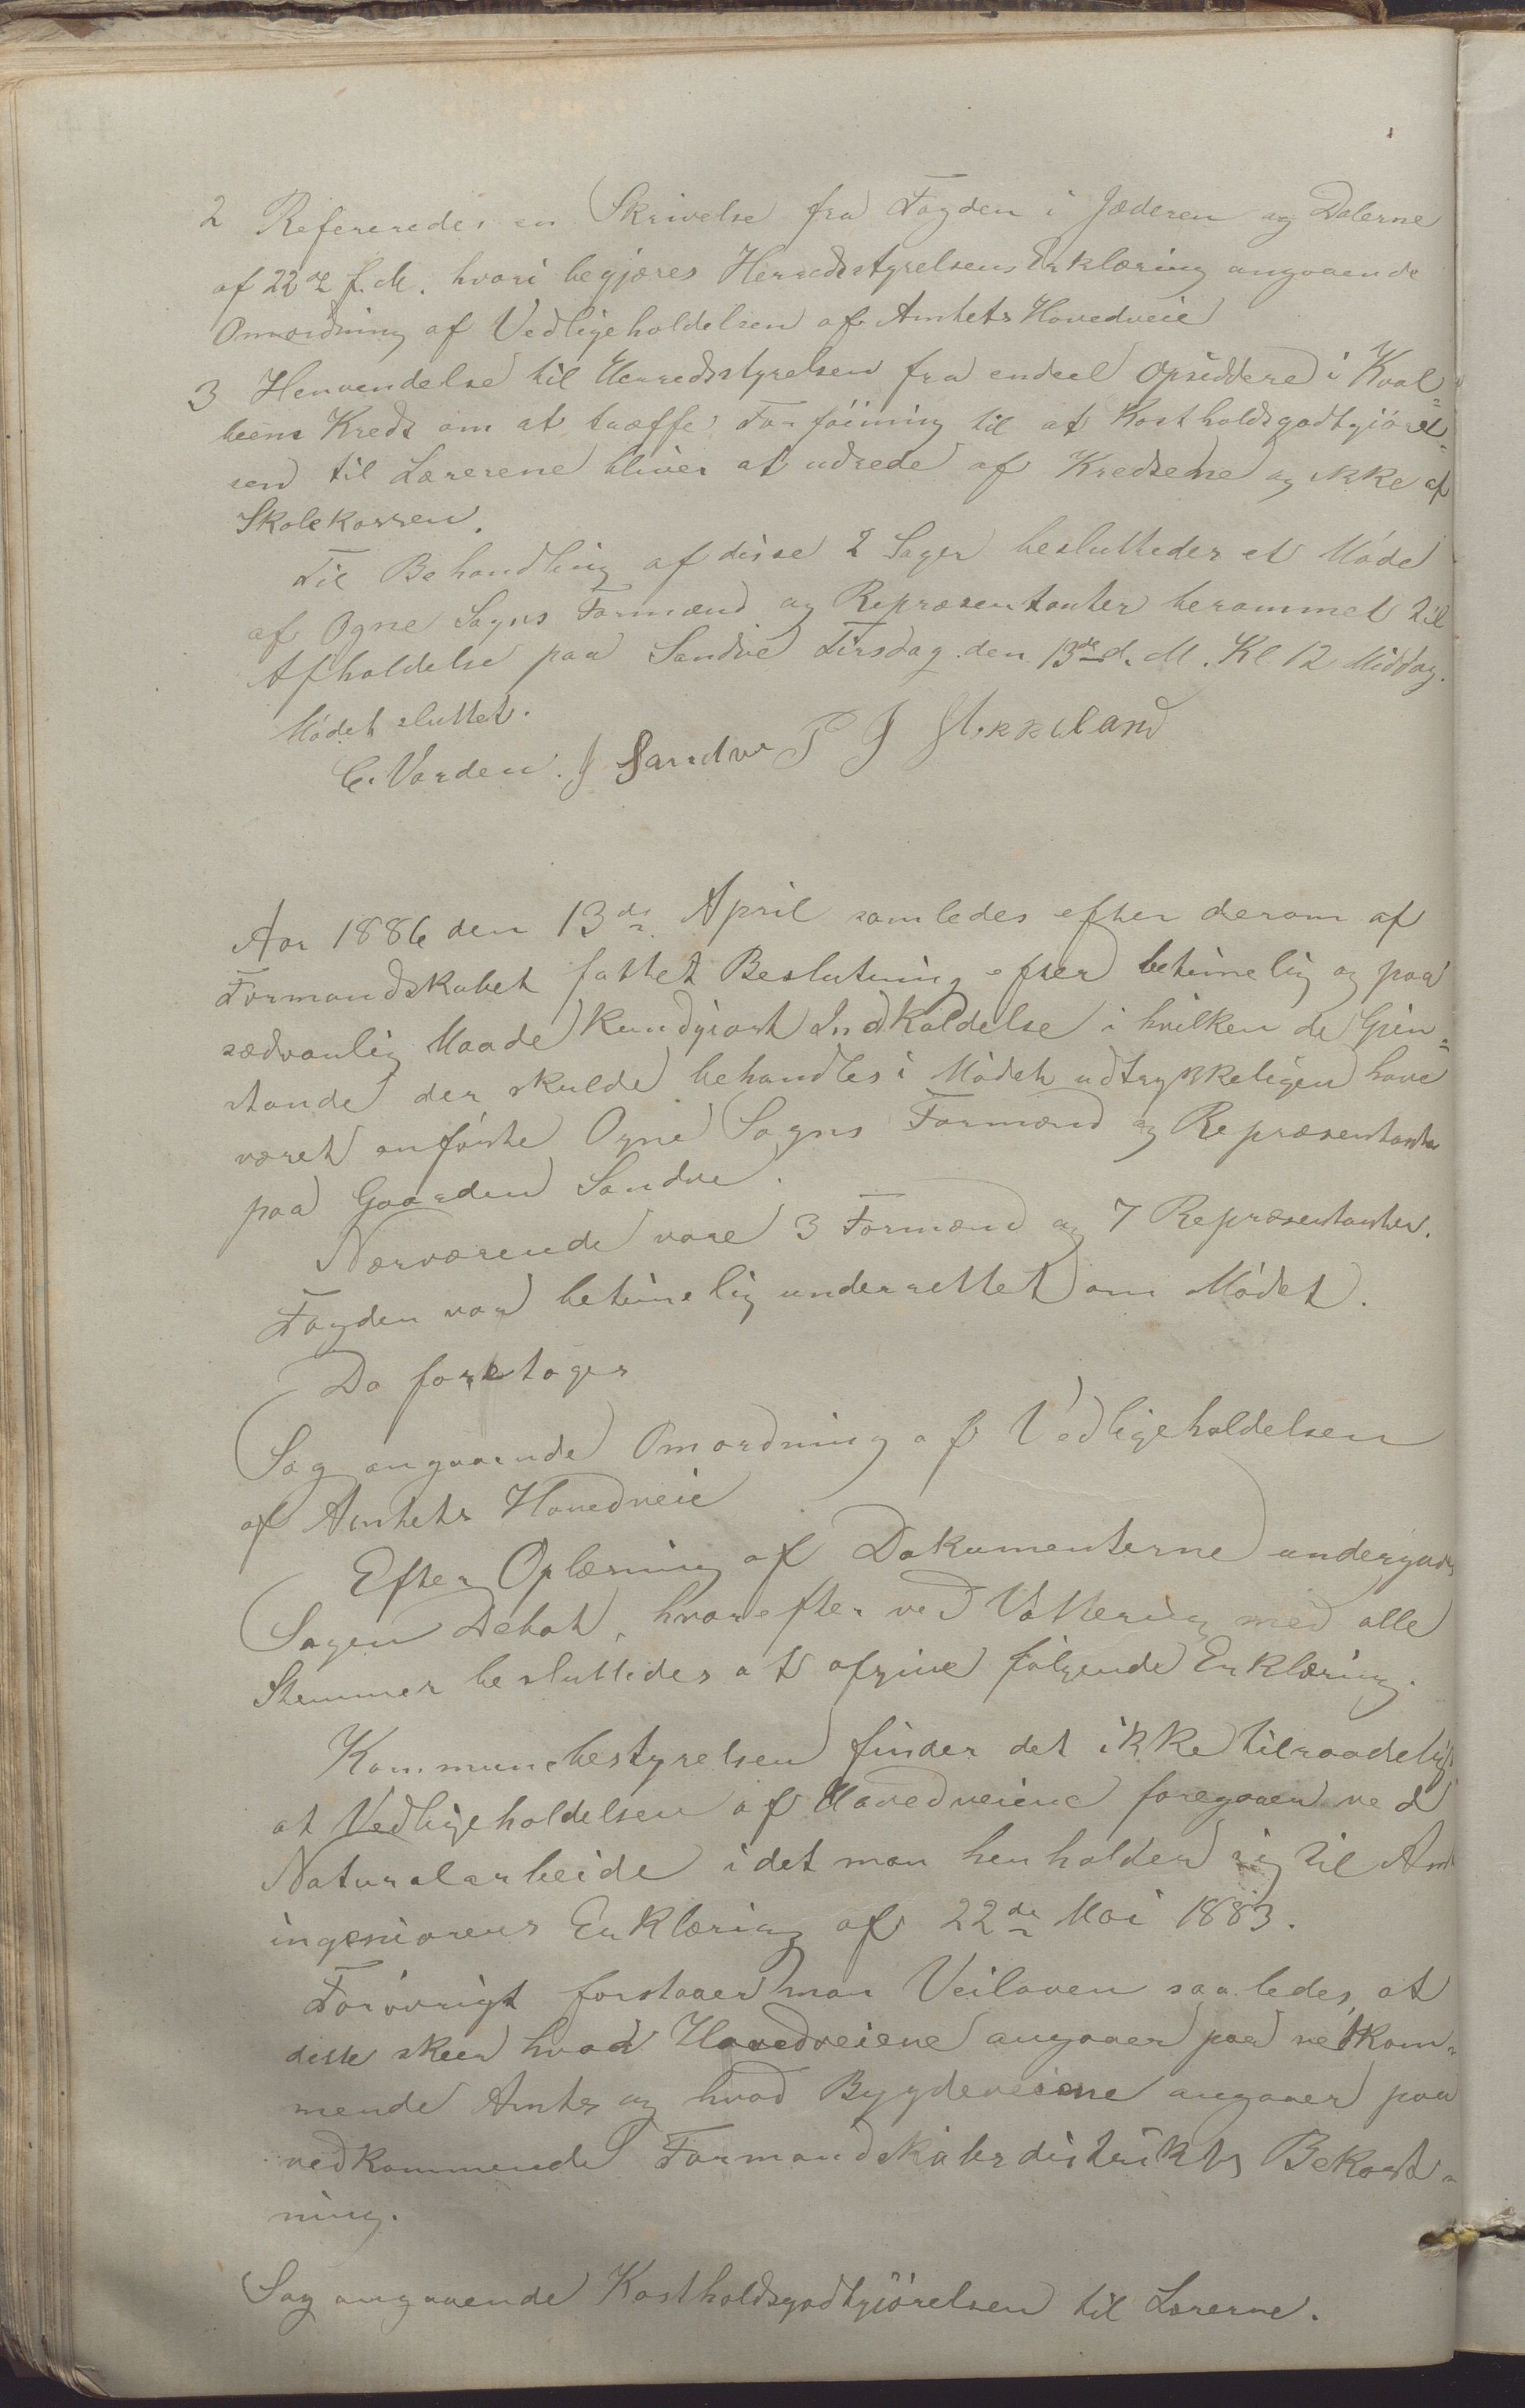 2 Refereredes en Skrivelse fra Fogden i Jæderen og Dalerne
af 22de f. M. hvori begjæres Herredsstyrelsens Erklæring angaaende
Omordning af Vedligeholdelsen af Amtets Hovedveie
3 Henvendelse til Herredsstyrelsen fra endeel Opsiddere i Kval=
beens Kreds om at træffe Forföining til at Kostholdsgodtgjörel=
sen til Lærerene bliver at udrede af Kredsene og ikke af
Skolekassen.
Til Behandling af disse 2 Sager besluttedes et Möde
af Ogne Sogns Formænd og Repræsentanter berammet til
Afholdelse paa Sandve Tirsdag den 13de d. M. Kl 12 Middag.
Mödet sluttet.
C. Varden. J Sandve P J
Aar 1886 den 13de April samledes efter derom af
Formandskabet fattet Beslutning efter betimelig og paa
sædvanlig Maade kundgjort Indkaldelse i hvilken de Gjen=
stande der skulde behandles i Mödet udtrykkeligen have
været anförte Ogne Sogns Formænd og Repræsentanter
paa Gaarden Sandve.
Nærværende vare 3 Formænd og 7 Repræsentanter.
Fogden var betimelig underrettet om Mödet.
Da foretoges
Sag angaaende Omordning af Vedligeholdelsen
af Amtets Hovedveie
Efter Oplæsning af Dokumenterne undergaves
Sagen Debat, hvorefter ved Vottering med alle
Stemmer besluttedes at afgive fölgende Erklæring.
Kommunebestyrelsen finder det ikke tilraadeligt
at Vedligeholdelsen af Hovedveiene foregaaer ved
Naturalarbeide idet man henholder sig til Amts
ingeniörens Erklæring af 22de Mai 1883.
Forövrigt forstaaer man Veiloven saaledes, at
dette skeer hvad Hovedveiene angaaer paa vedkom=
mende Amts og hvad Bygdeveiene angaaer paa
vedkommende Formandskabsdistrikts Bekost=
ning.
Sag angaaende Kostholdsgodtgjörelsen til Lærerne.